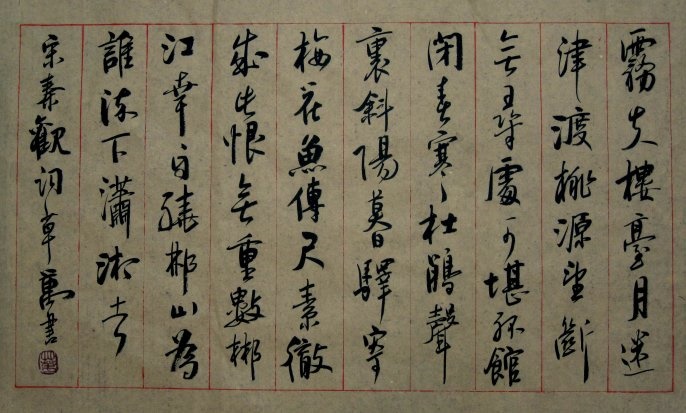 霧失樓臺月迷
津渡桃源望斷
無尋處可堪孤館
閉春寒、杜鵑聲
裏斜陽暮驛寄
梅花魚傳尺素徹
成此恨無重數郴
江幸自繞郴山為
誰流下瀟湘去
宋秦觀詞草萬書